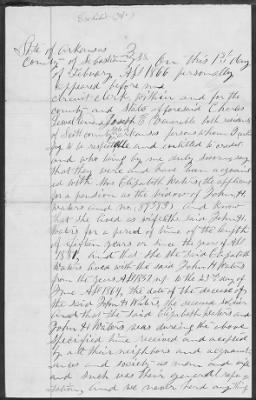 Exhibit (A)
State of Arkansas
County of Sebastian SS On this 1st day
of February AD 1866 personally
appeared before me
circuit clerk within and for the
county and State aforesaid Charles
Joseph E. both residents
of Scott county Arkansas persons whom I
to be respectable and entitled to credit
and who being by me duly sworn say
that they were and have been acquaint
ed with Mrs Elizabeth Waters the applicant
for a pension as the widow of John H.
Waters and know
that she lived as wife the said John H.
Waters for a period of time of the length
of years or since the year of AD
and that she the said Elizabeth
Waters lived with the said John H Waters
from the year AD to the day of
June AD 1864 the date of the decease of
the said John H Waters the deceased soldier
and that the said Elizabeth Waters and
John H Waters was during the above
specified time received and accepted
by all their neighbors and acquaint
ances and society as man and wife
and such was their general repu
tation, and we never heard anything